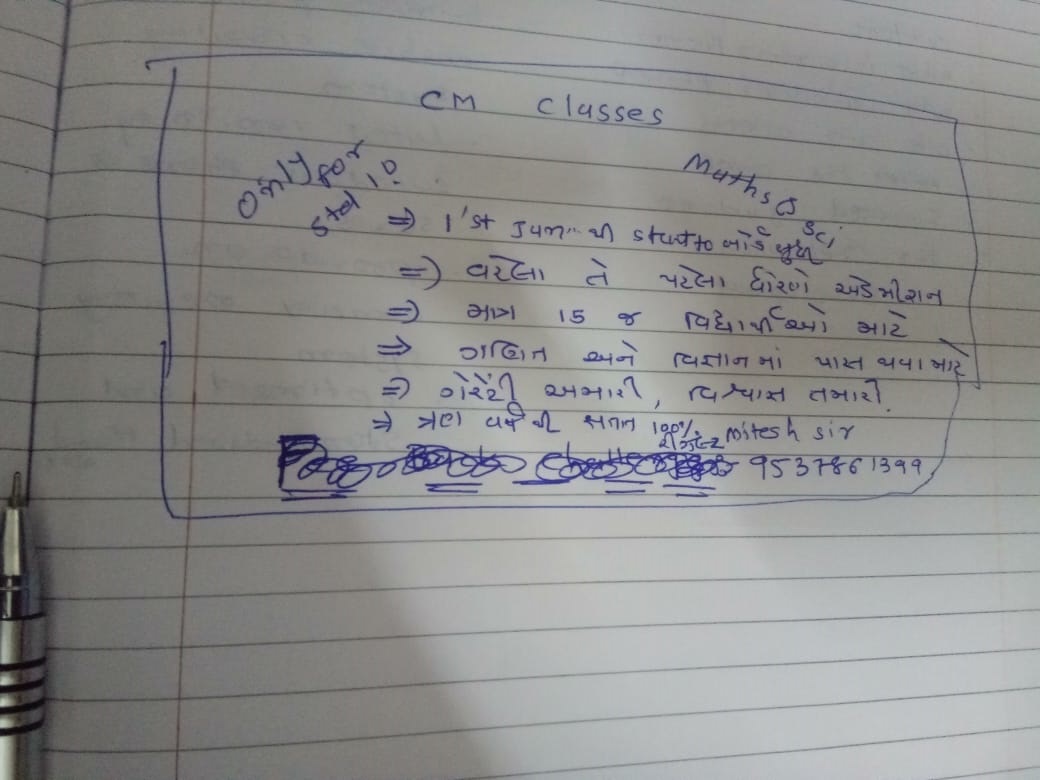 CM Classes
Only for
Std 10
Maths &
Sci
⇒ 1'st June થી start to બોર્ડ સુધી
⇒ વહેલા તે પહેલા ધોરણે એડમીશન
⇒ માત્ર 15 જ વિદ્યાર્થીઓ માટે
⇒ ગણિત અને વિજ્ઞાનમાં પાસ થવા માટે
⇒ ગેરેંટી અમારી, વિશ્વાસ તમારો.
⇒ ત્રણ વર્ષથી સતત 100% રીઝલ્ટ mitesh sir
9537861399